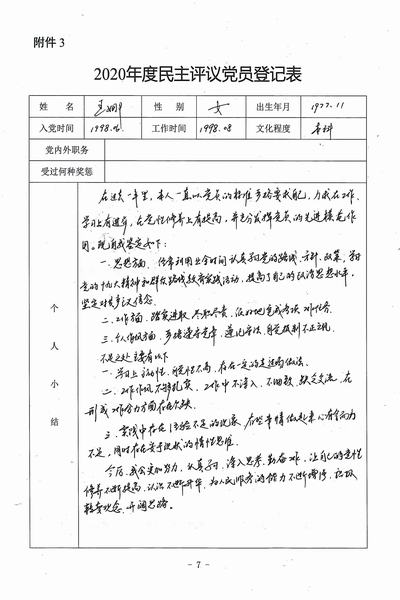 附件 3
2020年度民主评议党员登记表
姓 名 性 别 女 出生年月 1977.11
入党时间 1998.06 工作时间 1998.08 文化程度 本科
党内外职务
受过何种奖惩
个人小结
在过去一年里，本人一直以党员的标准严格要求自己，力求在工作、
学习上有进步，在党性修养上有提高，并充分发挥党员的先进模范作
用。现自我鉴定如下：
一、思想方面，经常利用业余时间认真学习党的路线、方针、政策，学习
党的十九大精神和群众路线教育实践活动，提高了自己的政治思想水平，
坚定对共产主义信念。
二、工作方面，踏实进取，尽职尽责，很好地完成各项工作任务。
三、个人作风方面，严格遵守党章，遵纪守法，自觉抵制不正之风。
不足之处主要有以下
一、学习上主动性、自觉性不高，存在一定的走过场做法。
二、工作作风不够扎实，工作中不深入、不细致，缺乏交流，在
形成工作合力方面存在欠缺。
三、实践中存在经验不足的现象，有些事情做起来心有余力
不足，同时存在安于现状的惰性思维。
今后，我会更加努力，认真学习，深入思考，勤奋工作，让自己的党性
修养不断提高，认识不断升华，为人民服务的能力不断增强，积极
转变观念，开阔思路。
- 7 -